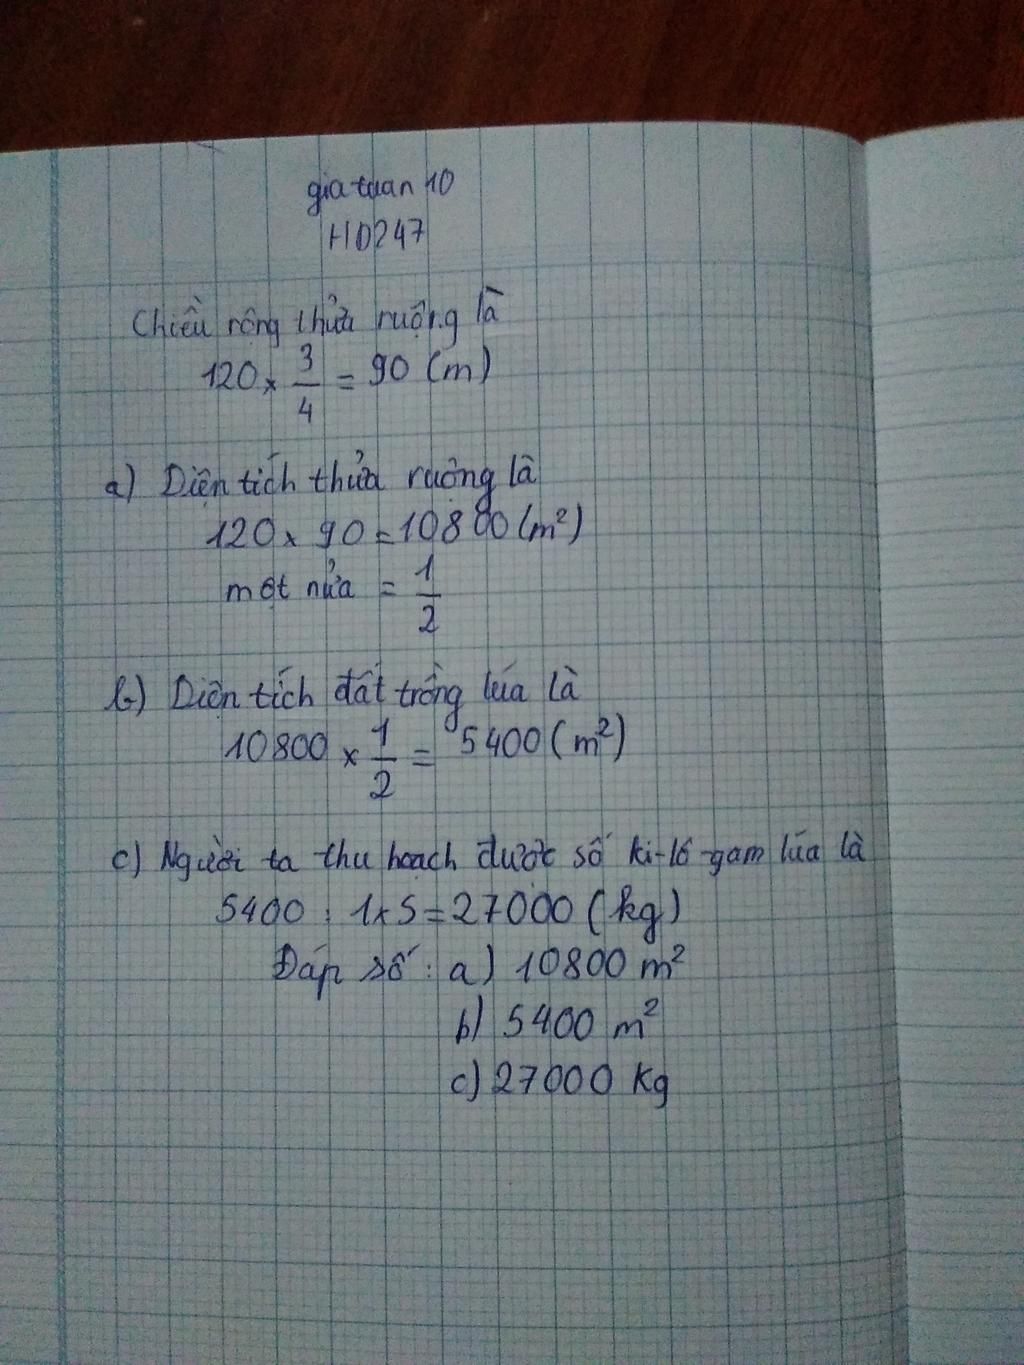 giatuan 10
HD247
Chiều rộng thửa ruộng là
120 × 3/4 = 90 (m)
a) Diện tích thửa ruộng là
120 × 90 = 10800 (m²)
một nửa = 1/2
b) Diện tích đất trồng lúa là
10800 × 1/2 = 5400 (m²)
c) Người ta thu hoạch được số ki-lô-gam lúa là
5400 : 1 × 5 = 27000 (kg)
Đáp số : a) 10800 m²
b) 5400 m²
c) 27000 Kg